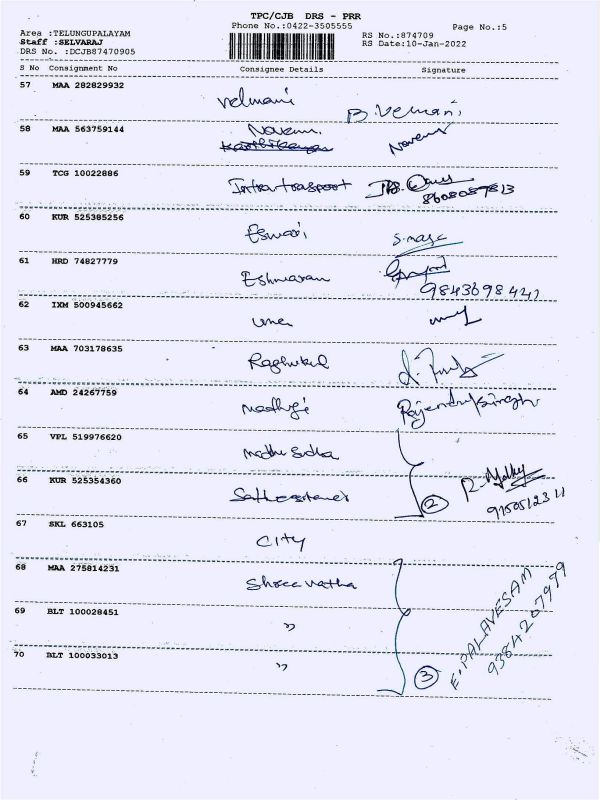 TPC/CJB DRS - PRR
Phone No.:0422-3505555
Page No.:5
Area :TELUNGUPALAYAM
Staff :SELVARAJ
DRS No. :DCJB87470905
RS No.:874709
RS Date:10-Jan-2022
S No Consignment No Consignee Details Signature
57 MAA 282829932 velmani B. Velmani
58 MAA 563759144 Naveen. Naveen
59 TCG 10022886 Intra transport
60 KUR 525385256 Eswari
61 HRD 74827779 Eshwaran
62 IXM 500945662 uma
63 MAA 703178635 Raghukul
64 AMD 24267759 Rajendra singh
65 VPL 519976620 Madhu Sudha
66 KUR 525354360 2
67 SKL 663105 City
68 MAA 275814231 Shree natha
69 BLT 100028451 "
70 BLT 100033013 " 3
E. PALAVESAM
9384207979